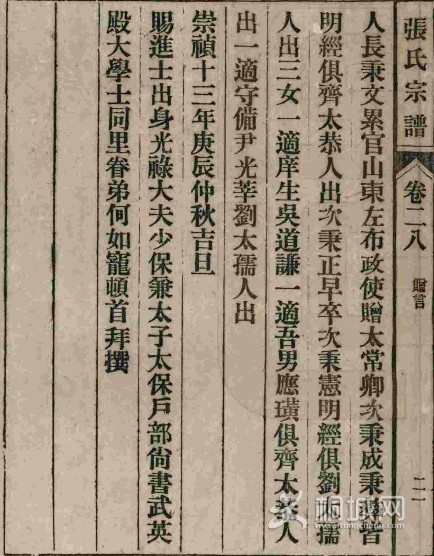 張氏宗譜
卷二八
贈言
二
人長秉文累官山東左布政使贈太常卿次秉成秉
明經俱齊太恭人出次秉正早卒次秉憲明經俱劉太孺
人出三女一適庠生吳道謙一適吾男應璜俱齊太恭人
出一適守備尹光莘劉太孺人出
崇禎十三年庚辰仲秋吉旦
賜進士出身光祿大夫少保兼太子太保戶部尚書武英
殿大學士同里眷弟何如寵頓首拜撰
桐城網